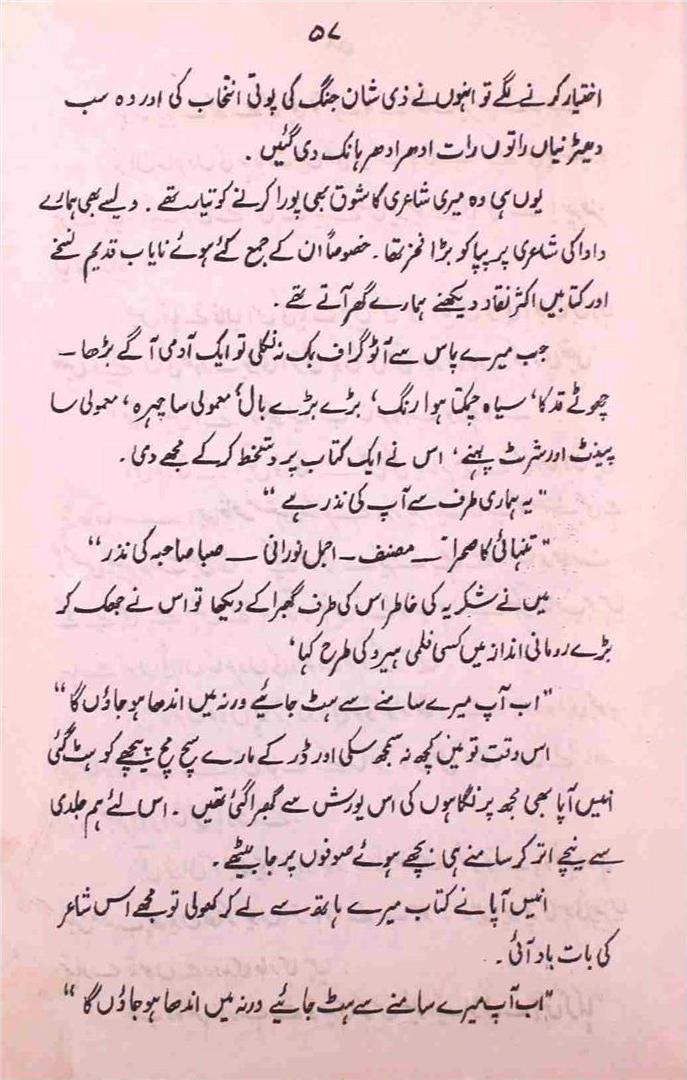 ۵۷
اختیار کرنے لگے تو انہوں نے ذی شان جنگ کی پوتی انتخاب کی اور وہ سب
دھیڑنیاں راتوں رات ادھر ادھر ہانک دی گئیں ۔
یوں ہی وہ میری شاعری کا شوق بھی پورا کرنے کو تیار تھے ۔ ویسے بھی ہمارے
دادا کی شاعری پر پپا کو بڑا فخر تھا ۔ خصوصاً ان کے جمع کئے ہوئے نایاب قدیم نسخے
اور کتابیں اکثر نقاد دیکھنے ہمارے گھر آتے تھے ۔
جب میرے پاس سے آٹو گراف بک نہ نکلی تو ایک آدمی آگے بڑھا —
چھوٹے قد کا، سیاہ چمکتا ہوا رنگ، بڑے بڑے بال، معمولی سا چہرہ، معمولی سا
پینٹ اور شرٹ پہنے، اس نے ایک کتاب پر دستخط کر کے مجھے دی ۔
"یہ ہماری طرف سے آپ کی نذر ہے"
"تنہائی کا صحرا — مصنف — اجمل نورانی — صبا صاحبہ کی نذر"
میں نے شکریہ کی خاطر اس کی طرف گھبرا کے دیکھا تو اس نے جھک کر
بڑے رومانی انداز میں کسی فلمی ہیرو کی طرح کہا،
"اب آپ میرے سامنے سے ہٹ جائیے ورنہ میں اندھا ہو جاؤں گا"
اس وقت تو میں کچھ نہ سمجھ سکی اور ڈر کے مارے سچ مچ پیچھے کو ہٹ گئی
انیس آپا بھی مجھ پر نگاہوں کی اس یورش سے گھبرا گئی تھیں ۔ اس لئے ہم جلدی
سے نیچے اتر کر سامنے ہی بچھے ہوئے صوفوں پر جا بیٹھے ۔
انیس آپا نے کتاب میرے ہاتھ سے لے کر کھولی تو مجھے اس شاعر
کی بات یاد آئی ۔
"اب آپ میرے سامنے سے ہٹ جائیے ورنہ میں اندھا ہو جاؤں گا"